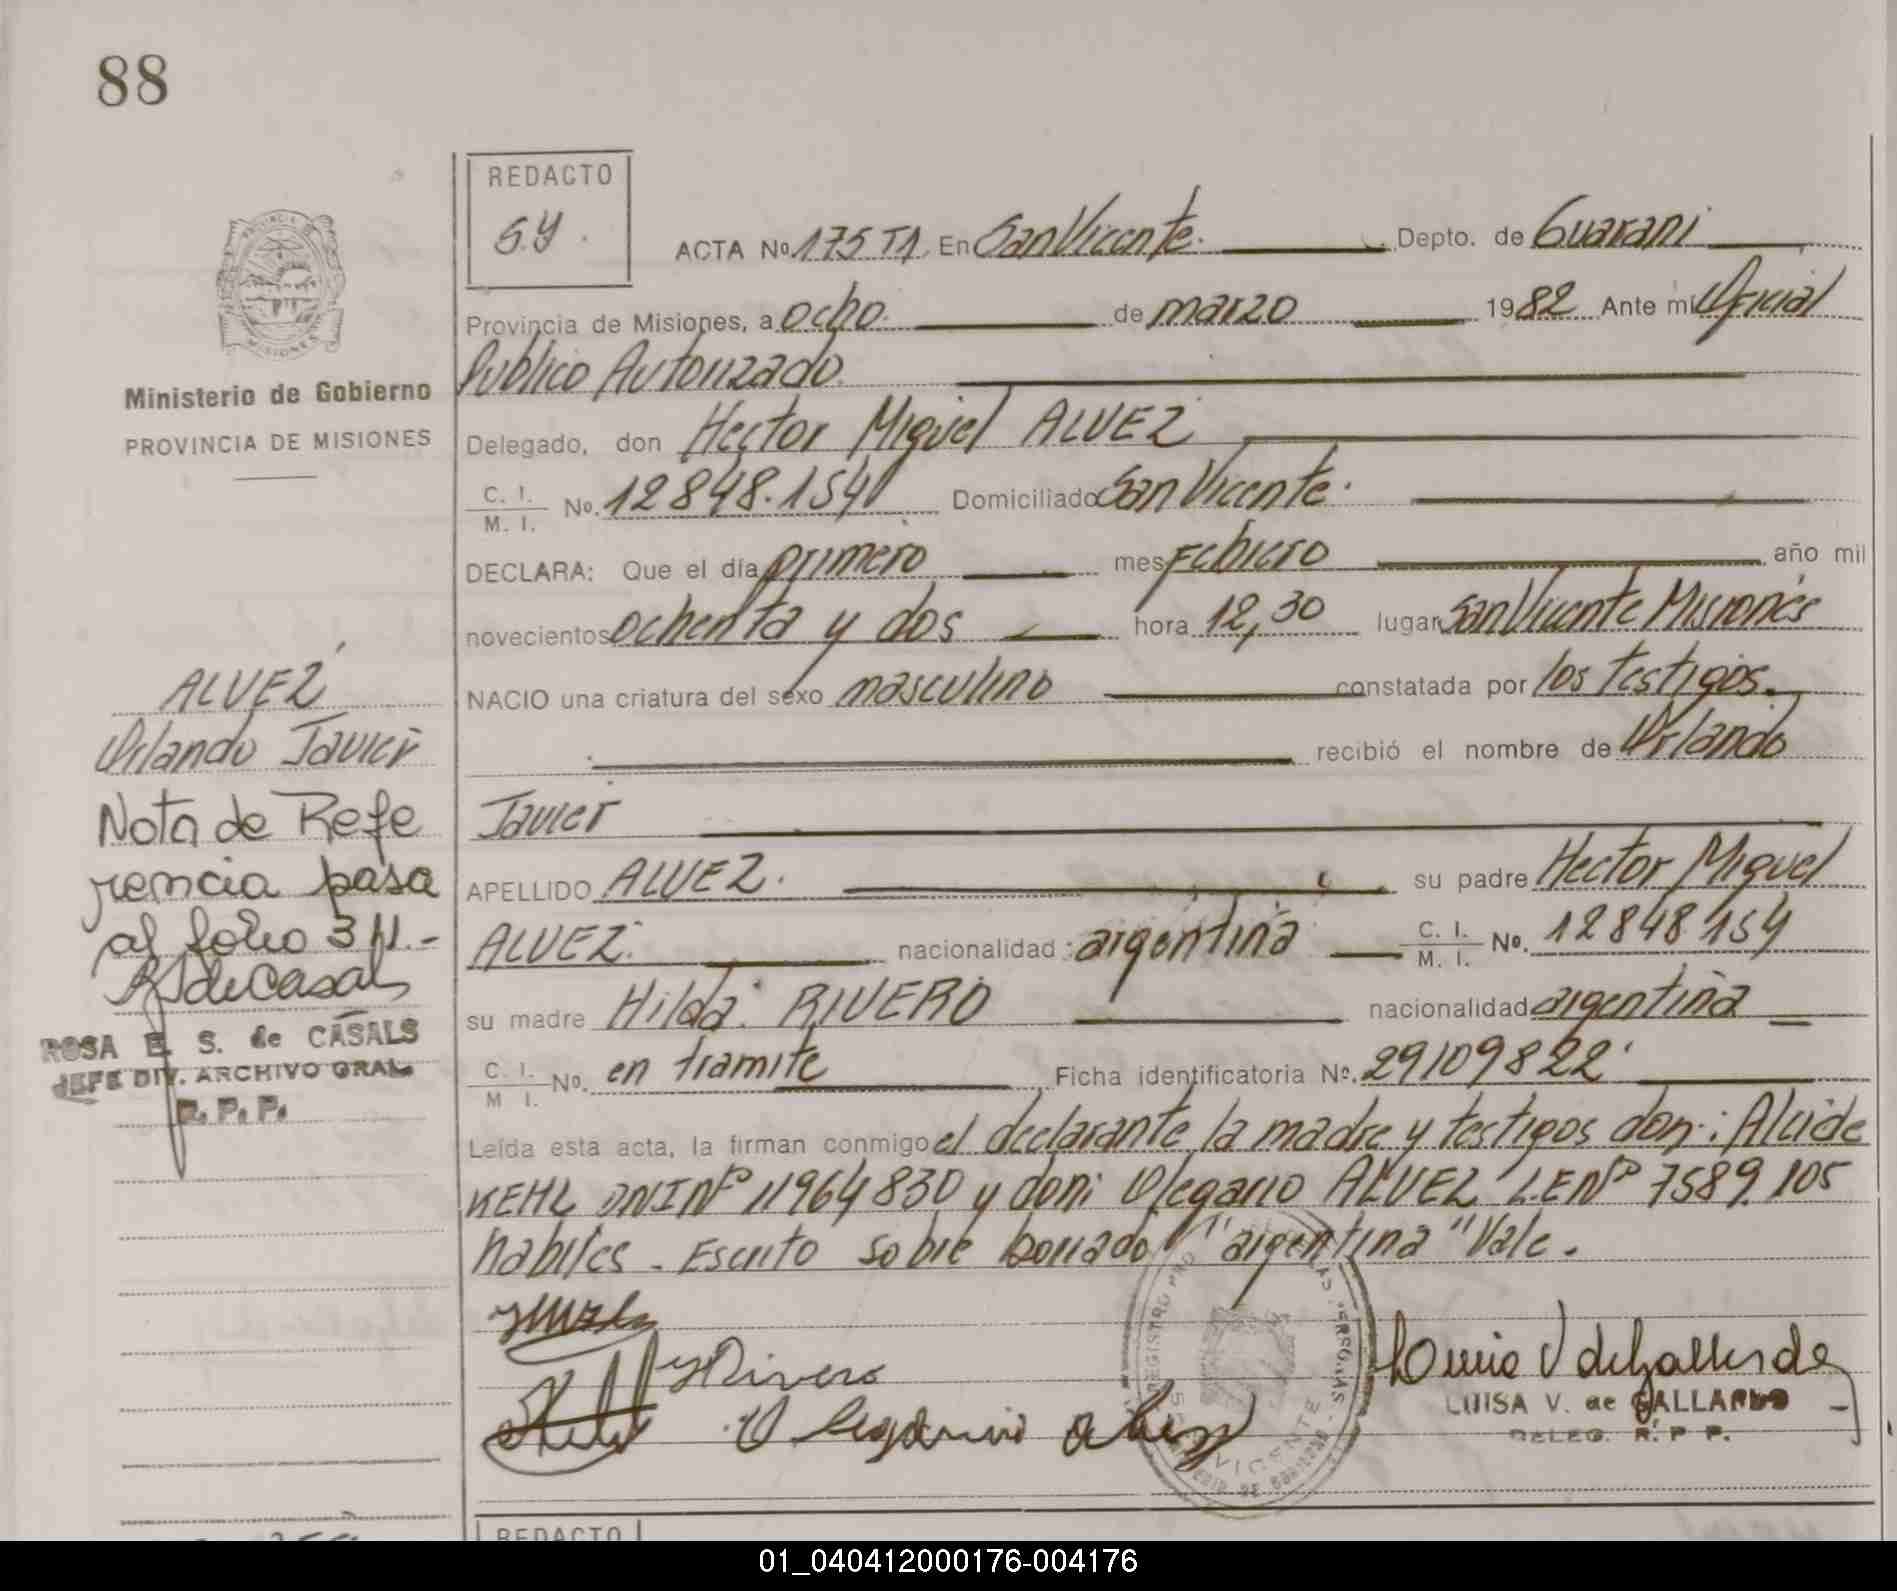 88
REDACTO
S.Y.
ACTA Nº 175 T1. En San Vicente. Depto. de Guarani
Provincia de Misiones, a ocho. de marzo 1982 Ante mi Oficial
Publico Autorizado.
Ministerio de Gobierno
PROVINCIA DE MISIONES
Delegado, don Hector Miguel ALVEZ
C. I.
M. I. No. 12848.154 Domiciliado San Vicente.
DECLARA: Que el día primero mes Febrero año mil
novecientos ochenta y dos hora 12,30 lugar San Vicente Misiones
NACIO una criatura del sexo masculino constatada por los testigos.
recibió el nombre de Orlando
Javier
APELLIDO ALVEZ. su padre Hector Miguel
ALVEZ. nacionalidad: argentina C. I.
M. I. Nº. 12848154
su madre Hilda RIVERO nacionalidad argentina
C. I.
M I. Nº. en tramite Ficha identificatoria Nº. 29109822
Leída esta acta, la firman conmigo el declarante, la madre y testigos don: Alcide
KEHL DNI Nº 11964830 y don: Olegario ALVEZ L.E Nº 7589.105
habiles - Escrito sobre borrado "argentina" Vale.
ALVEZ
Orlando Javier
Nota de Refe
rencia pasa
al folio 311.-
RSdeCasals
ROSA E. S. de CASALS
JEFE DIV. ARCHIVO GRAL.
R. P. P.
Rivero
Olegario alvez
REGISTRO PRO LAS PERSONAS
VICENTE
LUISA V. de GALLARDO
DELEG. R. P P.
REDACTO
01_040412000176-004176